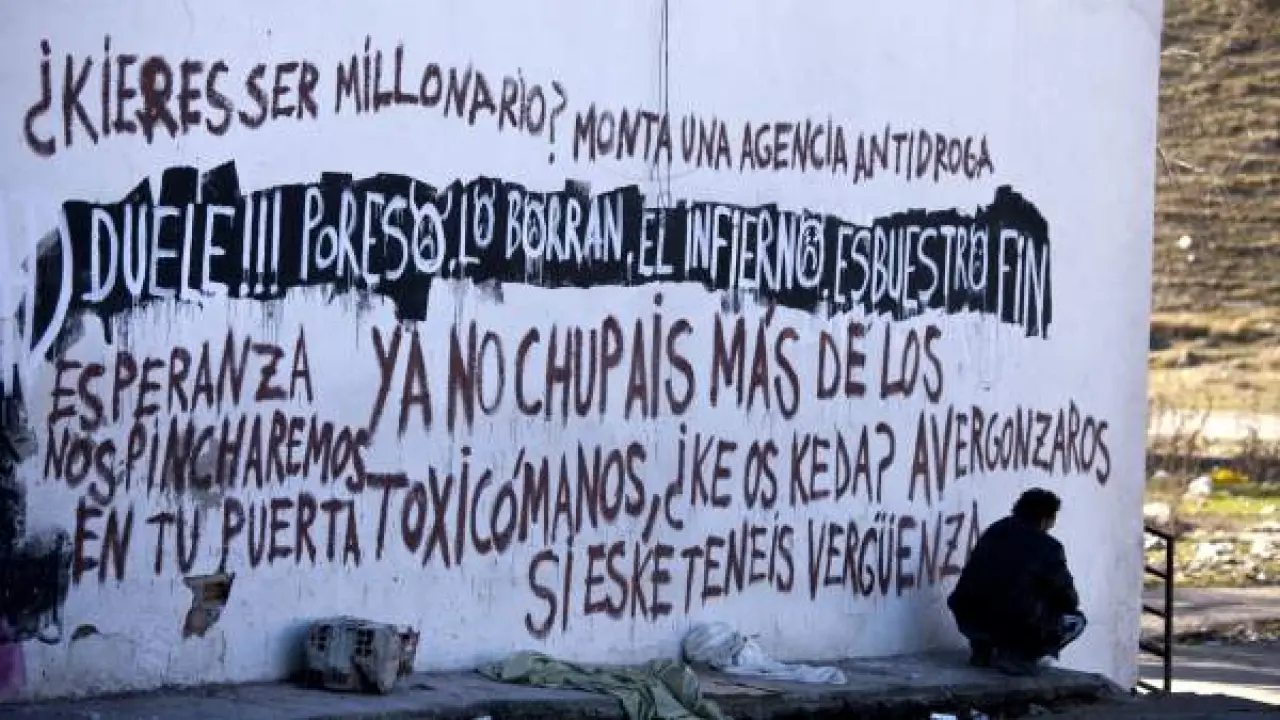 ¿KIERES SER MILLONARIO? MONTA UNA AGENCIA ANTIDROGA
DUELE!!! POR ESO LO BORRAN. EL INFIERNO ES BUESTRO FIN
ESPERANZA
NOS PINCHAREMOS
EN TU PUERTA
YA NO CHUPAIS MÁS DE LOS
TOXICÓMANOS, ¿KE OS KEDA? AVERGONZAROS
SI ES KE TENEIS VERGÜENZA